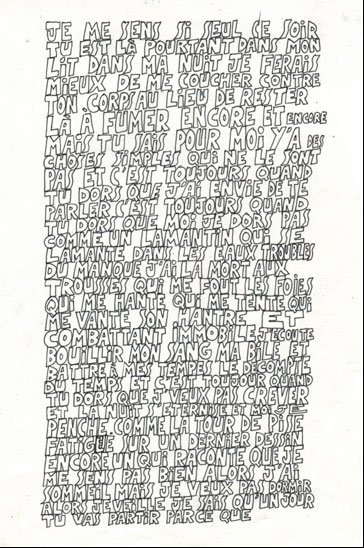 JE ME SENS SI SEUL CE SOIR
TU EST LÀ POURTANT DANS MON
LIT DANS MA NUIT JE FERAIS
MIEUX DE ME COUCHER CONTRE
TON CORPS AU LIEU DE RESTER
LÀ À FUMER ENCORE ET ENCORE
MAIS TU SAIS POUR MOI Y'A DES
CHOSES SIMPLES QUI NE LE SONT
PAS ET C'EST TOUJOURS QUAND
TU DORS QUE J'AI ENVIE DE TE
PARLER C'EST TOUJOURS QUAND
TU DORS QUE MOI JE DORS PAS
COMME UN LAMANTIN QUI SE
LAMANTE DANS LES EAUX TROUBLES
DU MANQUE J'AI LA MORT AUX
TROUSSES QUI ME FOUT LES FOIES
QUI ME HANTE QUI ME TENTE QUI
ME VANTE SON MANTRE ET
COMBATTANT IMMOBILE J'ECOUTE
BOUILLIR MON SANG MA BILE ET
BATTRE À MES TEMPES LE DÉCOMPTE
DU TEMPS ET C'EST TOUJOUR QUAND
TU DORS QUE J'VEUX PAS CREVER
ET LA NUIT S'ETERNISE ET MOI JE
PENCHE COMME LA TOUR DE PISE
FATIGUE SUR UN DERNIER DESSIN
ENCORE UN QUI RACONTE QUE JE
ME SENS PAS BIEN ALORS J'AI
SOMMEIL MAIS JE VEUX PAS DORMIR
ALORS J'EVEILLE JE SAIS QU'UN JOUR
TU VAS PARTIR PARCE QUE